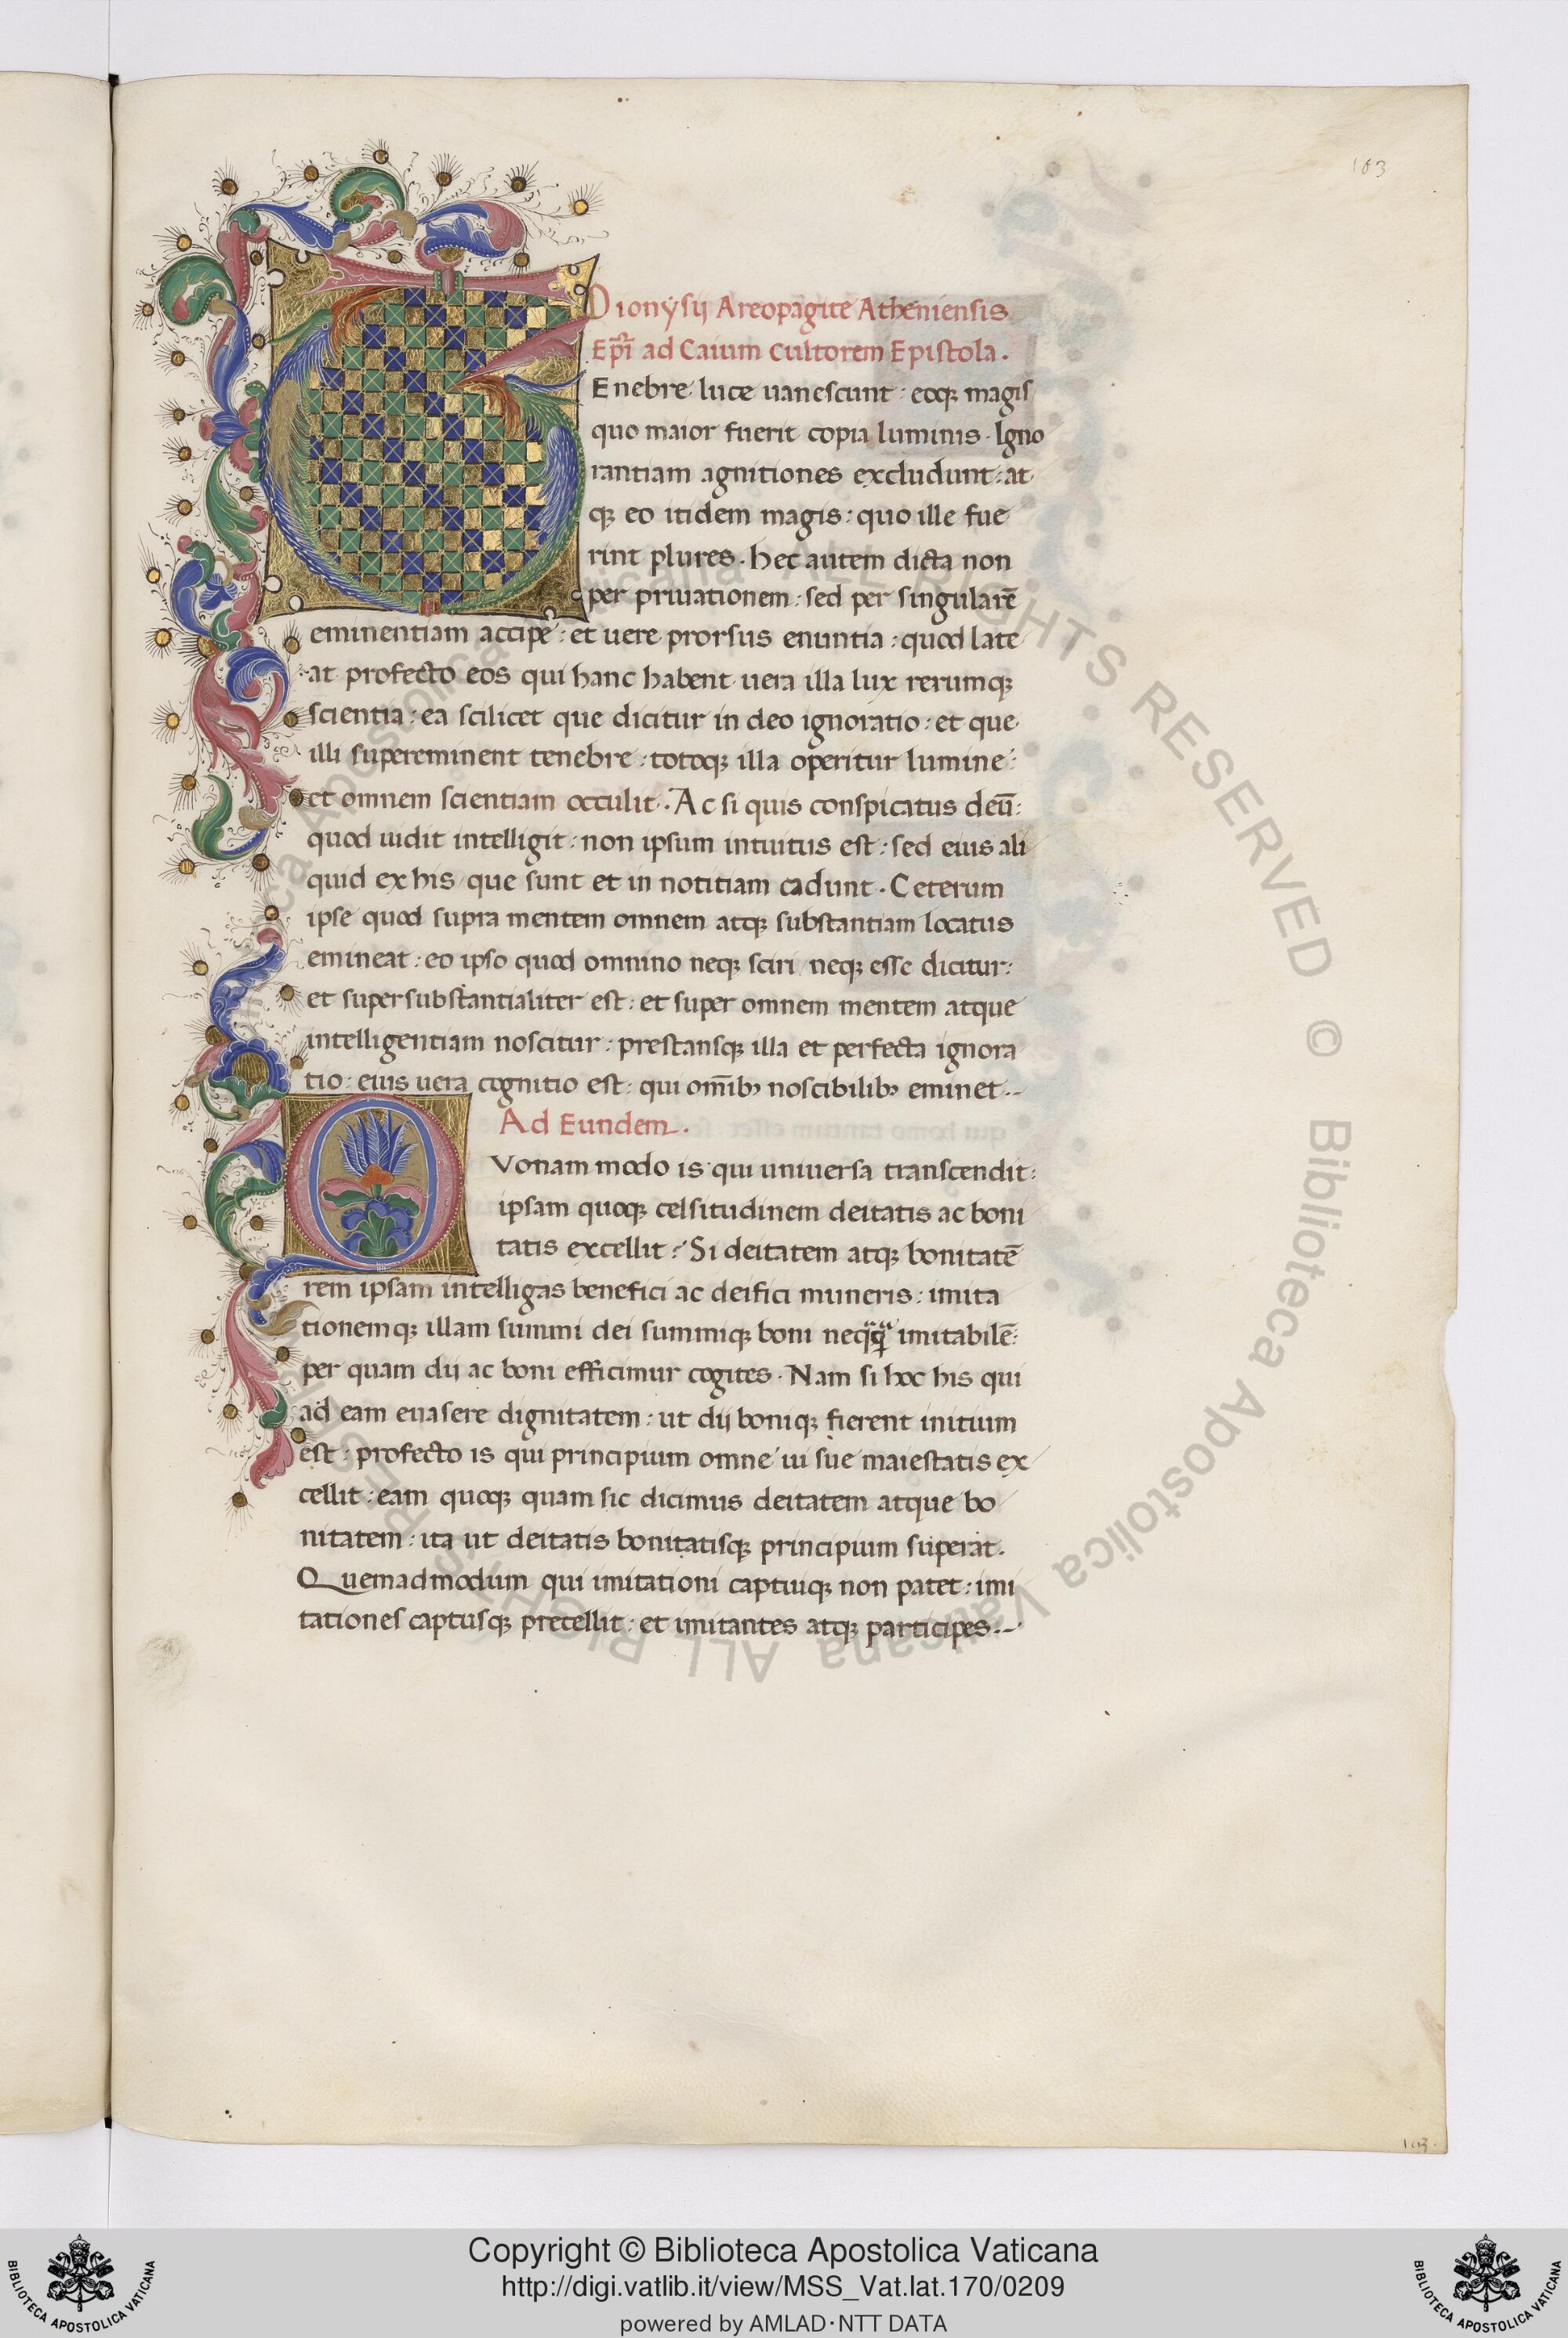 103
Dionÿsij Areopagite Atheniensis
Ep̄i ad Caium cultorem Epistola.
TEnebre luce uanescunt: eoqꝫ magis
quo maior fuerit copia luminis. Igno
rantiam agnitiones excludunt: at
qꝫ eo itidem magis: quo ille fue
rint plures. hec autem dicta non
per priuationem: sed per singularē
eminentiam accipe: et uere prorsus enuntia: quod late
at profecto eos qui hanc habent uera illa lux rerumqꝫ
scientia: ea scilicet que dicitur in deo ignoratio: et que
illi supereminent tenebre: totoqꝫ illa operitur lumine:
et omnem scientiam occulit. Ac si quis conspicatus deū:
quod uidit intelligit: non ipsum intuitus est: sed eius ali
quid ex his que sunt et in notitiam cadunt. Ceterum
ipse quod supra mentem omnem atqꝫ substantiam locatus
emineat: eo ipso quod omnino neqꝫ sciri neqꝫ esse dicitur:
et supersubstantialiter est: et super omnem mentem atque
intelligentiam noscitur: prestansqꝫ illa et perfecta ignora
tio: eius uera cognitio est: qui om̄ibꝫ noscibilibꝫ eminet.
Ad Eundem.
QVonam modo is qui uniuersa transcendit:
ipsam quoqꝫ celsitudinem deitatis ac boni
tatis excellit? Si deitatem atqꝫ bonitatē
rem ipsam intelligas benefici ac deifici muneris: imita
tionemqꝫ illam summi dei summiqꝫ boni neqͣꝗͣ imitabilē:
per quam dij ac boni efficimur cogites. Nam si hoc his qui
ad eam euasere dignitatem: ut dij boniqꝫ fierent initium
est: profecto is qui principium omne ui sue maiestatis ex
cellit: eam quoqꝫ quam sic dicimus deitatem atque bo
nitatem: ita ut deitatis bonitatisqꝫ principium superat.
Quemadmodum qui imitationi captuiqꝫ non patet: imi
tationes captusqꝫ precellit: et imitantes atqꝫ participes.
103
Biblioteca Apostolica Vaticana ALL RIGHTS RESERVED ©
Copyright © Biblioteca Apostolica Vaticana
http://digi.vatlib.it/view/MSS_Vat.lat.170/0209
powered by AMLAD·NTT DATA
BIBLIOTECA APOSTOLICA VATICANA
BIBLIOTECA APOSTOLICA VATICANA